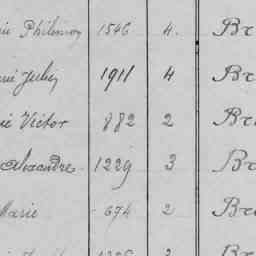 Philemon 1546 4. Br
Julie 1911 4 Br
Victor 882 2 Br
Alexandre 1229 3 Br
Marie 674 2 Br